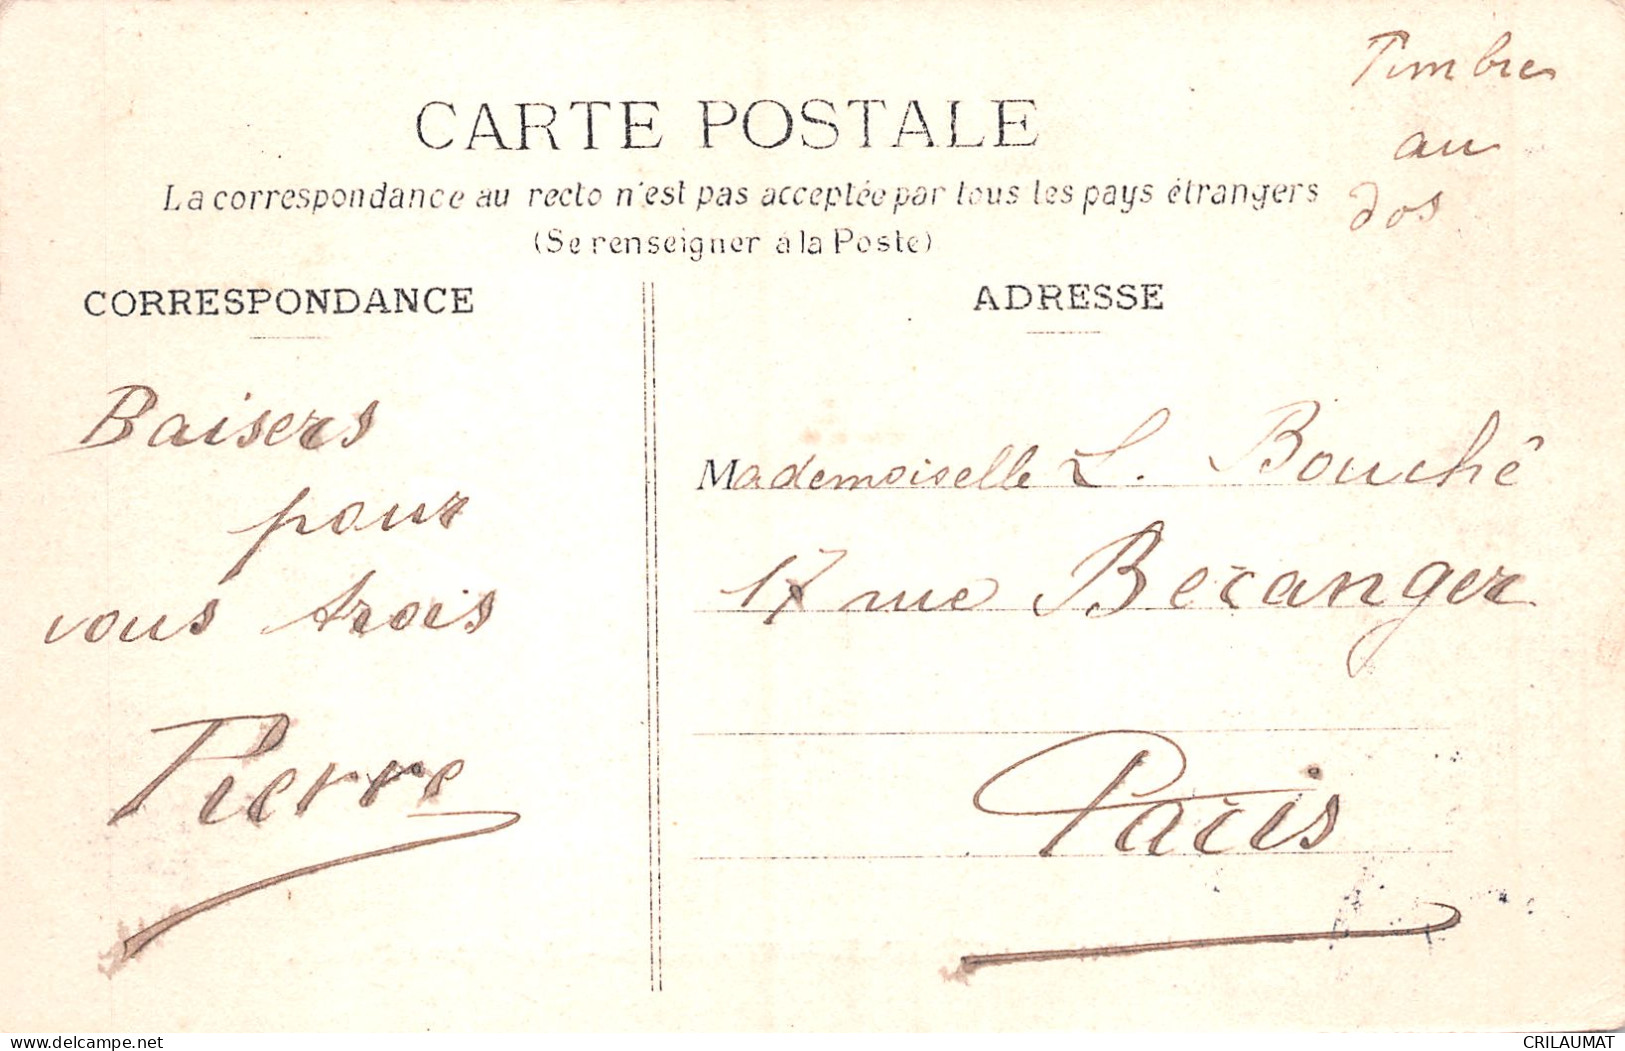 Timbres
au
dos
CARTE POSTALE
La correspondance au recto n'est pas acceptée par tous les pays étrangers
(Se renseigner à la Poste)
CORRESPONDANCE
ADRESSE
Baisers
pour
vous trois
Pierre
Mademoiselle L. Bouché
17 rue Beranger
Paris
CRILAUMAT